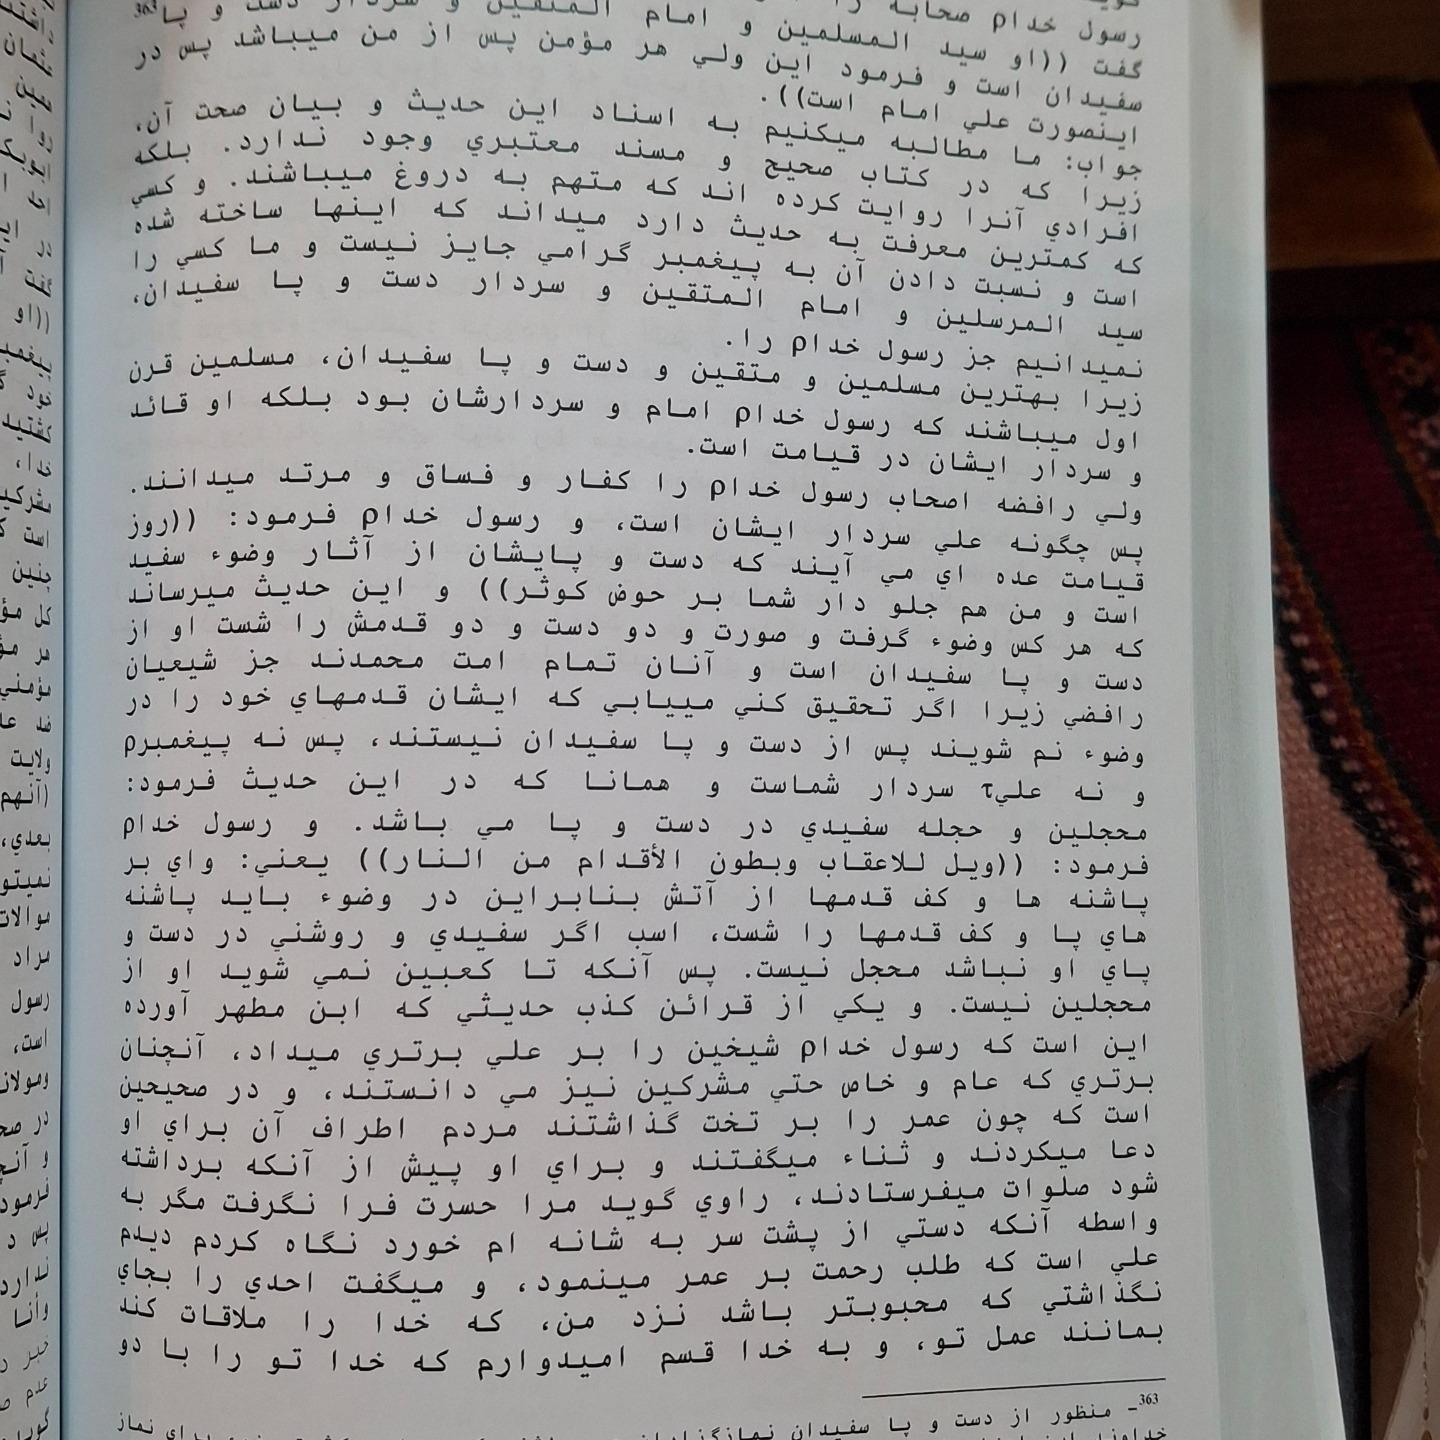 رسول خداρ صحابه را
گفت ((او سيد المسلمين و امام المتقين و سردار دست و پا363
سفيدان است و فرمود اين ولي هر مؤمن پس از من ميباشد پس در
اينصورت علي امام است)).
جواب: ما مطالبه ميكنيم به اسناد اين حديث و بيان صحت آن،
زيرا كه در كتاب صحيح و مسند معتبري وجود ندارد. بلكه
افرادي آنرا روايت كرده اند كه متهم به دروغ ميباشند. و كسي
كه كمترين معرفت به حديث دارد ميداند كه اينها ساخته شده
است و نسبت دادن آن به پيغمبر گرامي جايز نيست و ما كسي را
سيد المرسلين و امام المتقين و سردار دست و پا سفيدان،
نميدانيم جز رسول خداρ را.
زيرا بهترين مسلمين و متقين و دست و پا سفيدان، مسلمين قرن
اول ميباشند كه رسول خداρ امام و سردارشان بود بلكه او قائد
و سردار ايشان در قيامت است.
ولي رافضه اصحاب رسول خداρ را كفار و فساق و مرتد ميدانند.
پس چگونه علي سردار ايشان است، و رسول خداρ فرمود: ((روز
قيامت عده اي مي آيند كه دست و پايشان از آثار وضوء سفيد
است و من هم جلو دار شما بر حوض كوثر)) و اين حديث ميرساند
كه هر كس وضوء گرفت و صورت و دو دست و دو قدمش را شست او از
دست و پا سفيدان است و آنان تمام امت محمدند جز شيعيان
رافضي زيرا اگر تحقيق كني مييابي كه ايشان قدمهاي خود را در
وضوء نم شويند پس از دست و پا سفيدان نيستند، پس نه پيغمبرρ
و نه عليτ سردار شماست و همانا كه در اين حديث فرمود:
محجلين و حجله سفيدي در دست و پا مي باشد. و رسول خداρ
فرمود: ((ويل للاعقاب وبطون الأقدام من النار)) يعني: واي بر
پاشنه ها و كف قدمها از آتش بنابراين در وضوء بايد پاشنه
هاي پا و كف قدمها را شست، اسب اگر سفيدي و روشني در دست و
پاي او نباشد محجل نيست. پس آنكه تا كعبين نمي شويد او از
محجلين نيست. و يكي از قرائن كذب حديثي كه ابن مطهر آورده
اين است كه رسول خداρ شيخين را بر علي برتري ميداد، آنچنان
برتري كه عام و خاص حتي مشركين نيز مي دانستند، و در صحيحين
است كه چون عمر را بر تخت گذاشتند مردم اطراف آن براي او
دعا ميكردند و ثناء ميگفتند و براي او پيش از آنكه برداشته
شود صلوات ميفرستادند، راوي گويد مرا حسرت فرا نگرفت مگر به
واسطه آنكه دستي از پشت سر به شانه ام خورد نگاه كردم ديدم
علي است كه طلب رحمت بر عمر مينمود، و ميگفت احدي را بجاي
نگذاشتي كه محبوبتر باشد نزد من، كه خدا را ملاقات كند
بمانند عمل تو، و به خدا قسم اميدوارم كه خدا تو را با دو
363ـ منظور از دست و پا سفيدان نمازگزاران